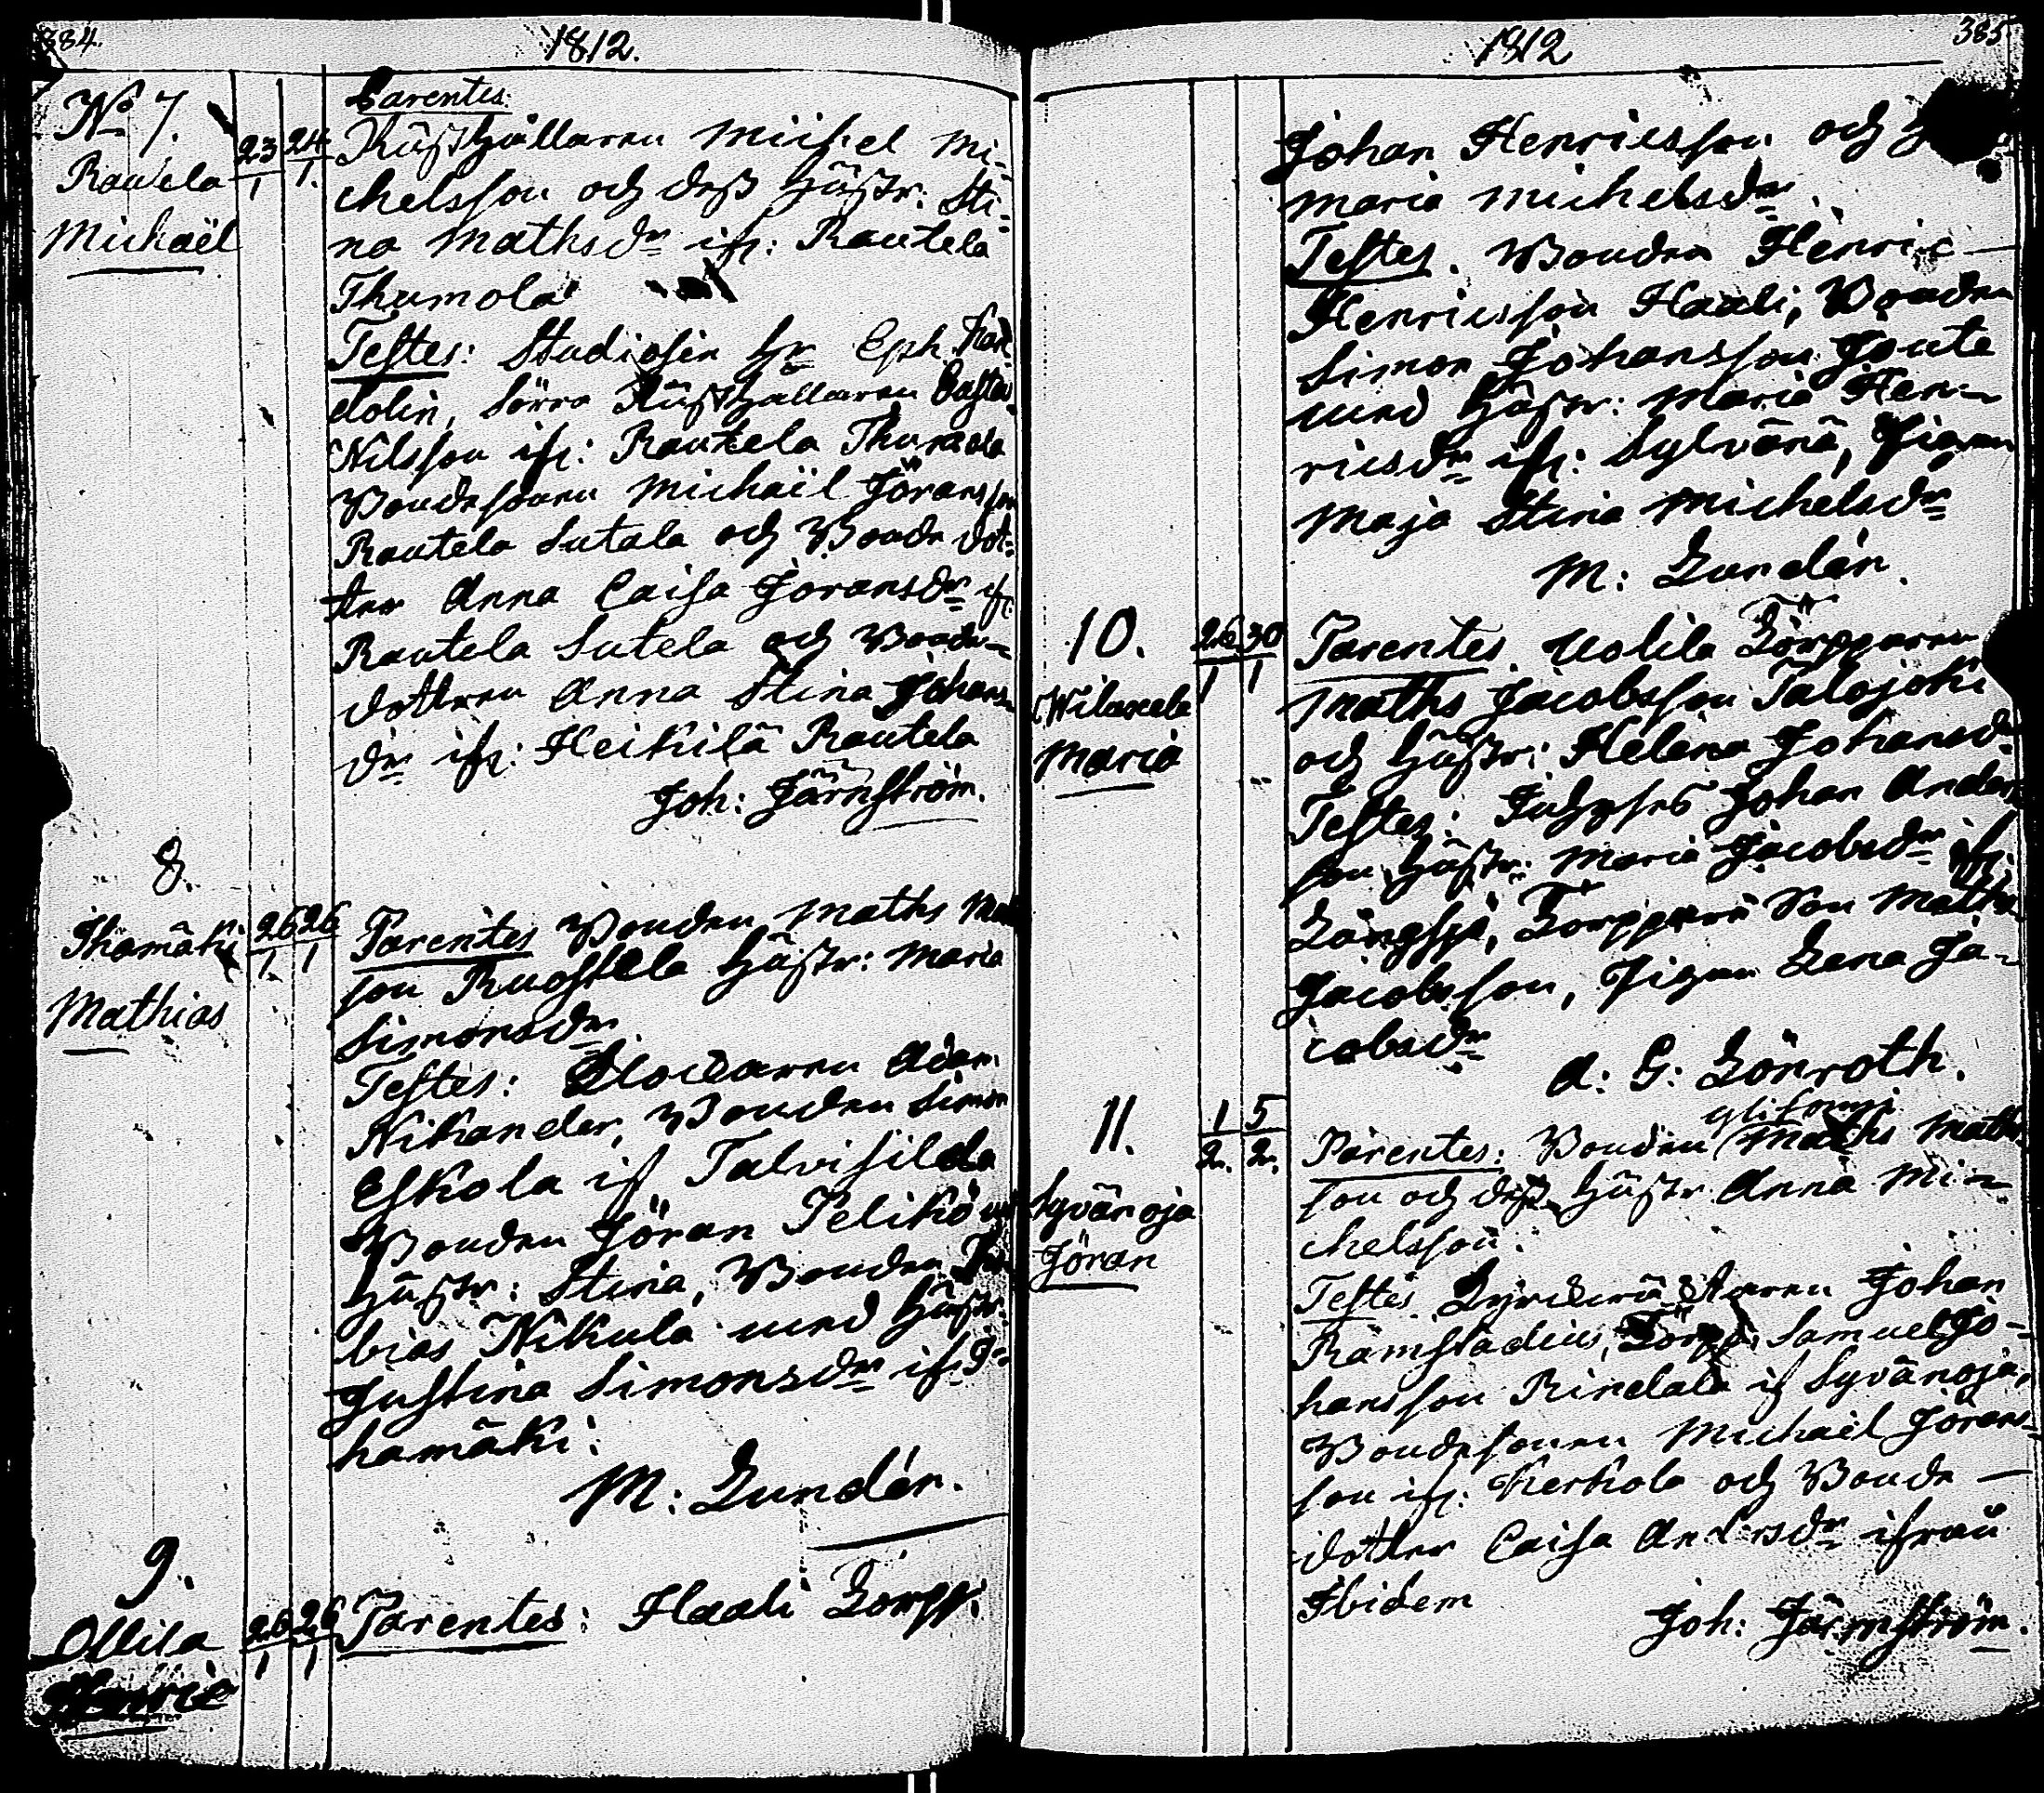 384.
1812.
No 7.
Rautela
Michaël
23/1 24/1.
Parentes:
Rusthållaren Michel Mi-
chelsson och dess hustr: Sti-
na Mathsdr ifr: Rautela
Thumola
Testes: Studiosen Hr Eph.
dolin, Förra Rusthållaren
Nilsson ifr: Rautela Thumola
Bondesonen Michaël Jöransson
Rautela Sutala och Bonde dot-
ter Anna Caisa Joransdr ifr
Rautela Sutela och Bonde-
dottren Anna Stina Johans-
dr ifr: Heikilä Rautela
Joh: Järnström.
8.
Ihamäki
Mathias
26/1. 26/1
Parentes Bonden Maths
son Ruostela hustr: Maria
Simonsdr
Testes: Klockaren Adam
Nikander, Bonden Simon
Eskola if Talvisilda
Bonden Jöran Pelikö
hustr: Stina, Bonden
bias Nikula med hustr:
Justina Simonsdr if I-
hamäki:
M: Lundén.
9.
Ollila
Henric
26/1 26/1
Parentes: Haali Torpp:
1812
385
Johan Henricsson och
Maria Michelsdr
Testes. Bonden Henric
Henricsson Haali, Bonden
Simon Johansson Joute
med hustr: Maria Hen-
ricsdr ifr: Sylvänä, Pigan
Maja Stina Michelsdr
M: Lundén.
10.
Maria
26/1 30/1
Parentes. Uolila Torpparen
Maths Jacobsson Talojoki
och hustr: Helena Johansd.
Testes: Inhyses Johan Anders-
son hustr: Maria Jacobsdr ifr:
Långsjö, Torppare Son Maths
Jacobsson, Pigan Lena Ja-
cobsdr
A: G: Lönroth.
11.
Syvänoja
Jöran
1/2. 5/2.
Parentes: Bonden Maths Maths-
son och dess hustr Anna Mi-
chelsson.
Testes Johan
Ramstadius, Torpp: Samuel Jo-
hansson Rindala if Syvänoja,
Bondesonen Michaël Jörans-
son ifr: Kerkola och Bonde
dotter Caisa Andersdr ifrån
Ibidem
Joh: Järnström.